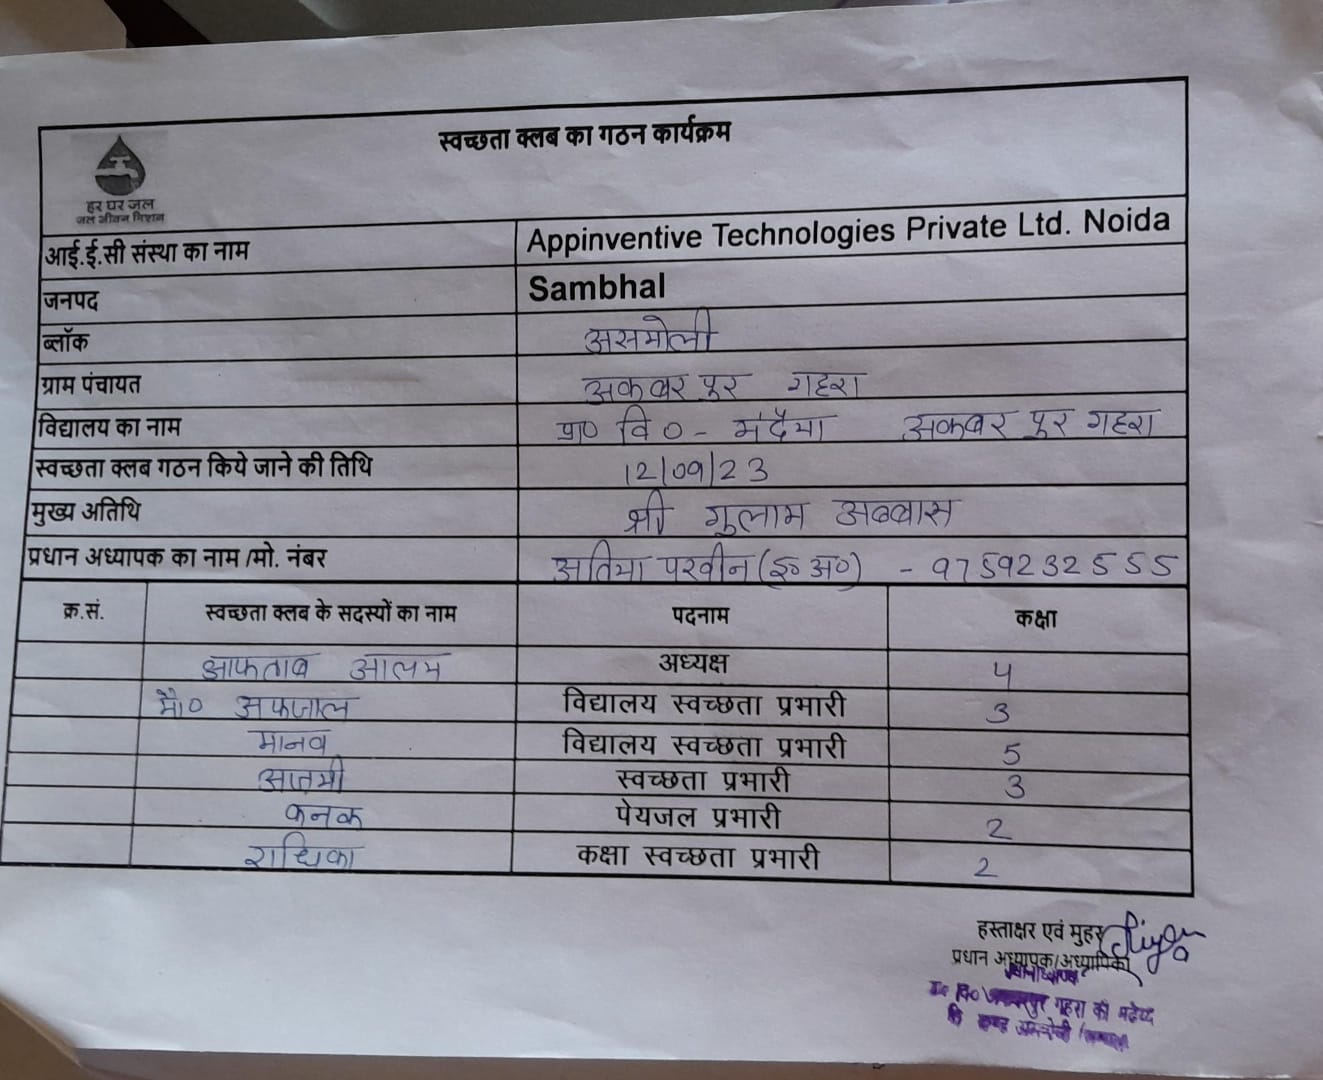 स्वच्छता क्लब का गठन कार्यक्रम
हर घर जल
जल जीवन मिशन
आई.ई.सी संस्था का नाम Appinventive Technologies Private Ltd. Noida
जनपद Sambhal
ब्लॉक असमोली
ग्राम पंचायत अकबर पुर गहरा
विद्यालय का नाम प्रा० वि० - मंदैया अकबर पुर गहरा
स्वच्छता क्लब गठन किये जाने की तिथि 12/09/23
मुख्य अतिथि श्री गुलाम अब्बास
प्रधान अध्यापक का नाम /मो. नंबर अतिया परवीन (इ० अ०) - 9759232555
क्र.सं. स्वच्छता क्लब के सदस्यों का नाम पदनाम कक्षा
आफताब आलम अध्यक्ष 4
मौ० अफजाल विद्यालय स्वच्छता प्रभारी 3
मानव विद्यालय स्वच्छता प्रभारी 5
स्वच्छता प्रभारी 3
कनक पेयजल प्रभारी 2
राधिका कक्षा स्वच्छता प्रभारी 2
हस्ताक्षर एवं मुहर
प्रधान अध्यापक/अध्यापिका
गहरा की